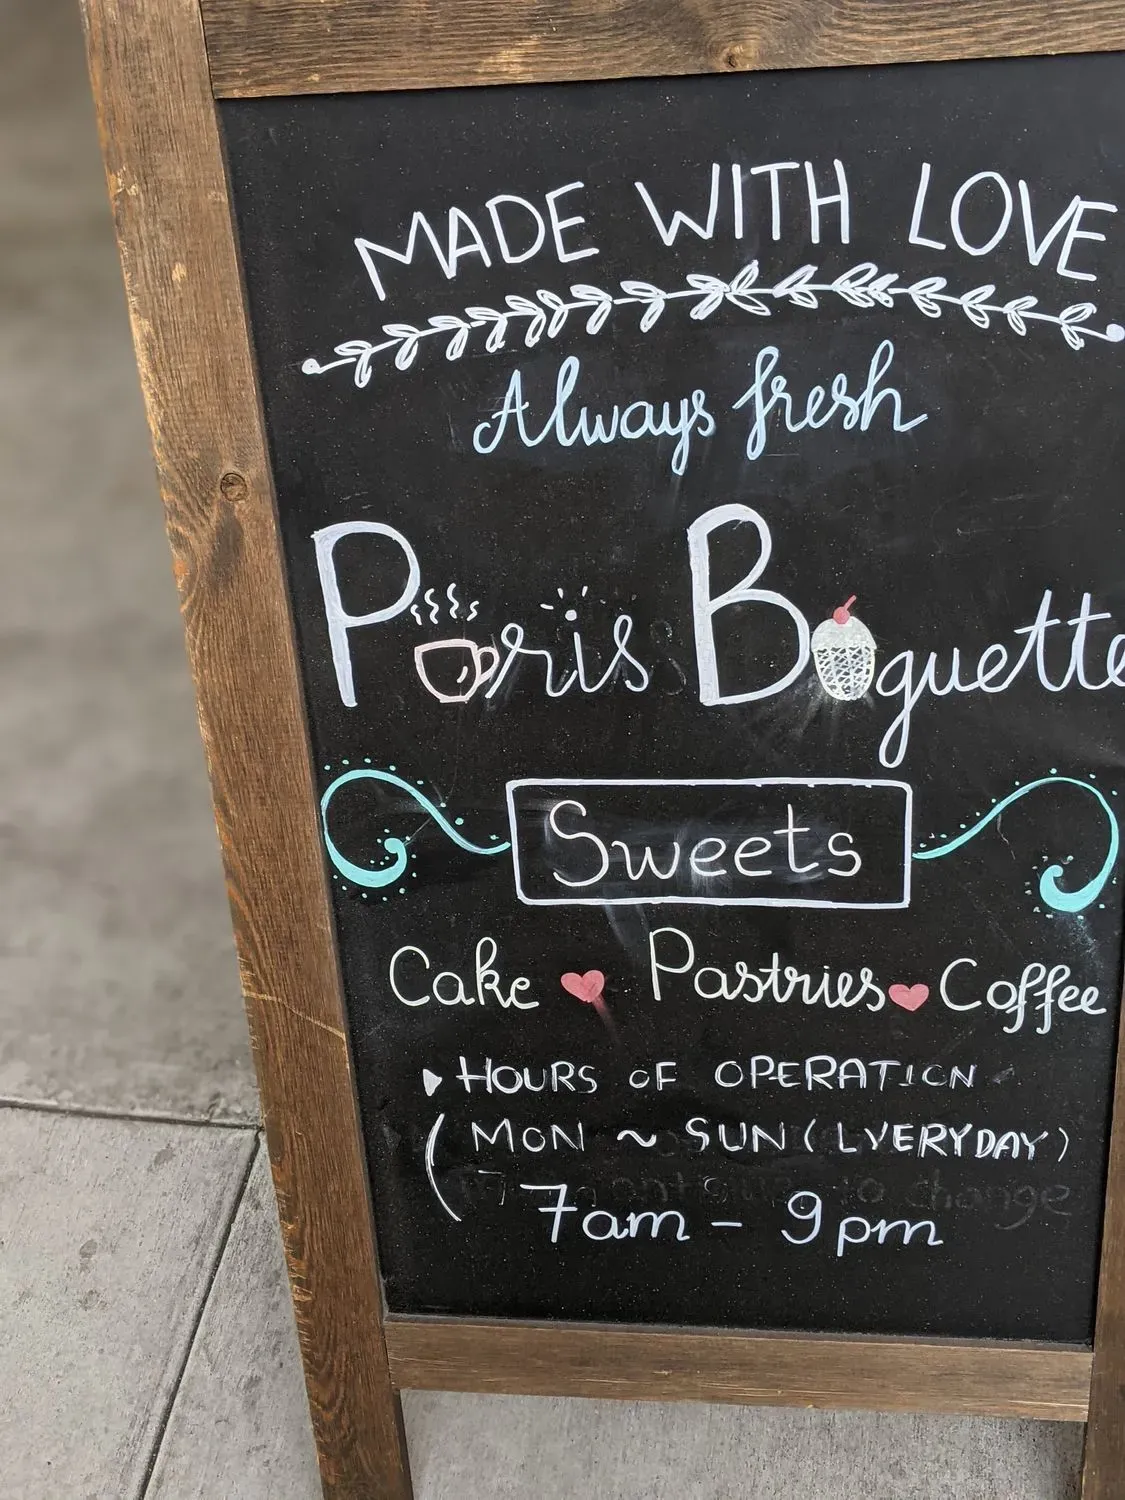 MADE WITH LOVE
Always fresh
Paris Baguette
Sweets
Cake Pastries Coffee
HOURS OF OPERATION
MON ~ SUN (EVERYDAY)
7am - 9pm